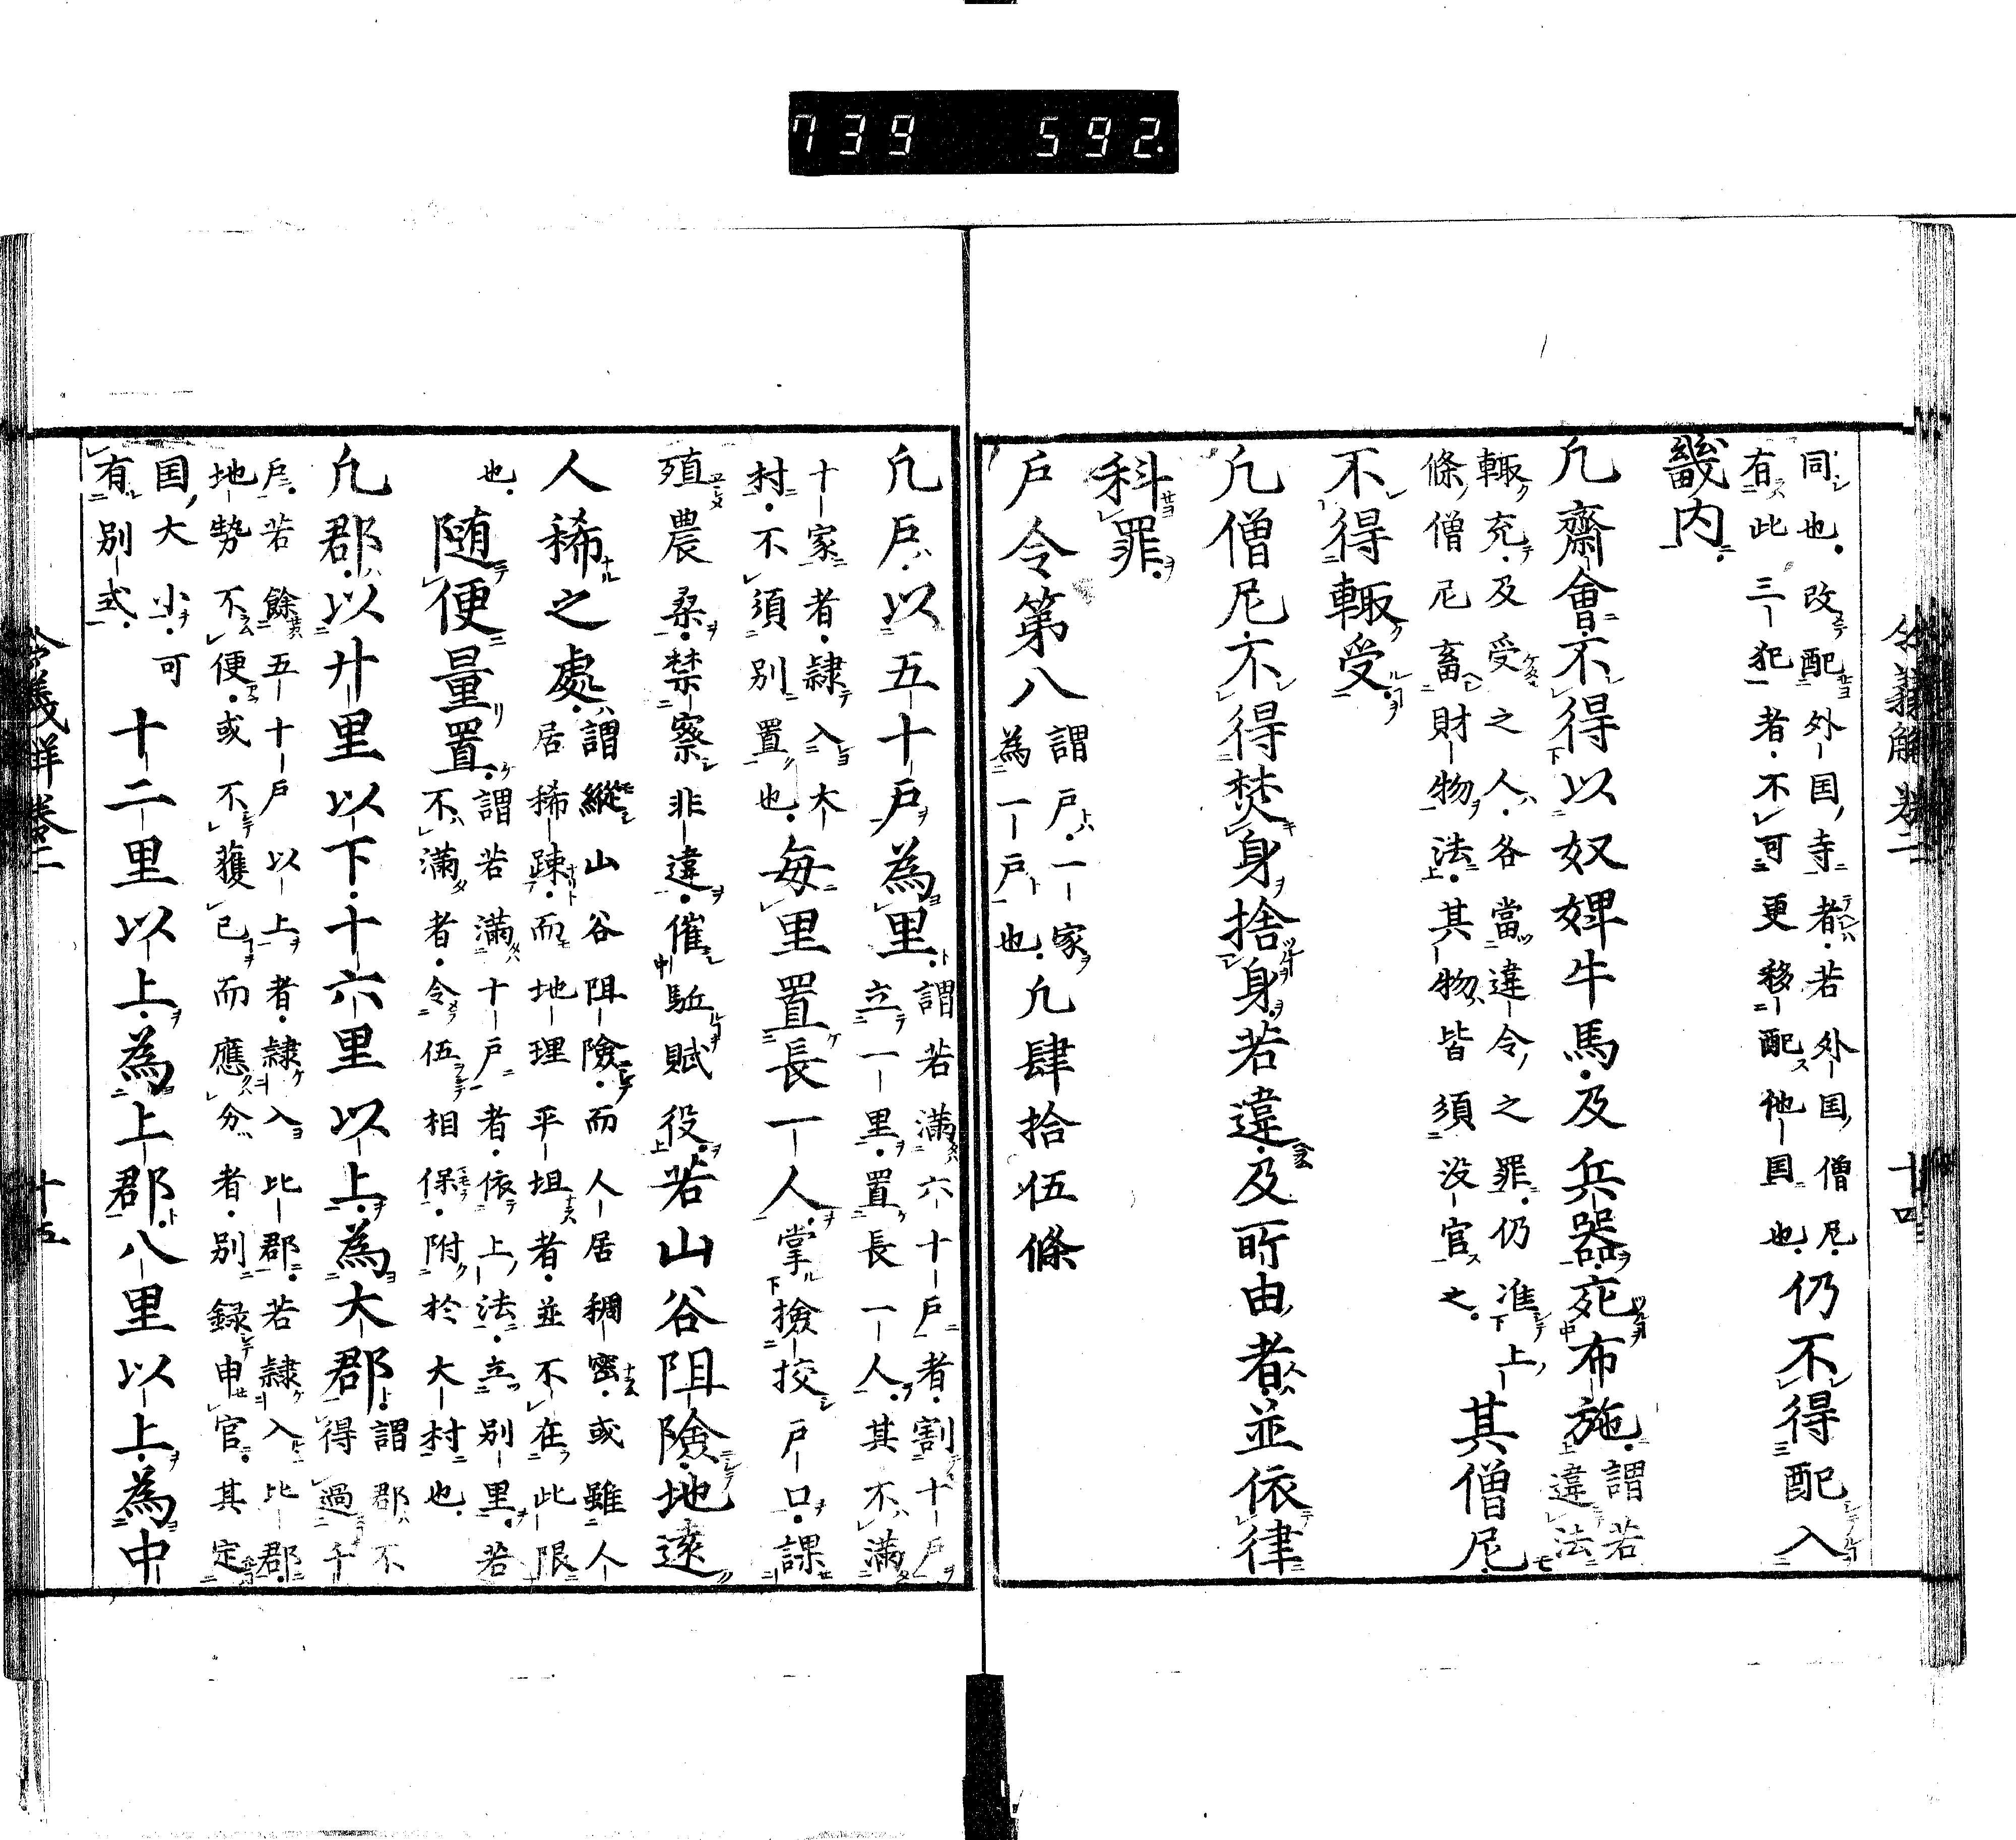 739 592
令義解卷二 十四
同也。改配外国寺者。若外国僧尼。
有此三犯者。不可更移配他国也。仍不得配入
畿内。
凡齋會。不得以奴婢牛馬。及兵器宛布施。謂若違法
輙充。及受之人。各當違令之罪。仍准上
條僧尼畜財物法。其物皆須没官之。其僧尼。
不得輙受。
凡僧尼。不得焚身捨身。若違。及所由者。並依律
科罪。
戸令第八謂戸。一家為一戸也。凡肆拾伍條
凡戸。以五十戸為里。謂若満六十戸者。割十戸
立一里。置長一人。其不満
十家者。隷入大
村。不須別置也。毎里置長一人。掌撿挍戸口。課
殖農桑。禁察非違。催駈賦役。若山谷阻險。地遠
人稀之處。謂縱山谷阻險。而人居稠密。或雖人
居稀踈。而地理平坦者。並不在此限
也。随便量置。謂若満十戸者。依上法立別里。若
不満者。令伍相保。附於大村也。
凡郡。以廿里以下。十六里以上。為大郡。謂郡不
得過千
戸。若餘五十戸以上者。隷入比郡。若隷入比郡。
地勢不便。或不獲已而應分者。別録申官。其定
国大小。可
有別式。十二里以上。為上郡。八里以上。為中
令義解卷二 十五